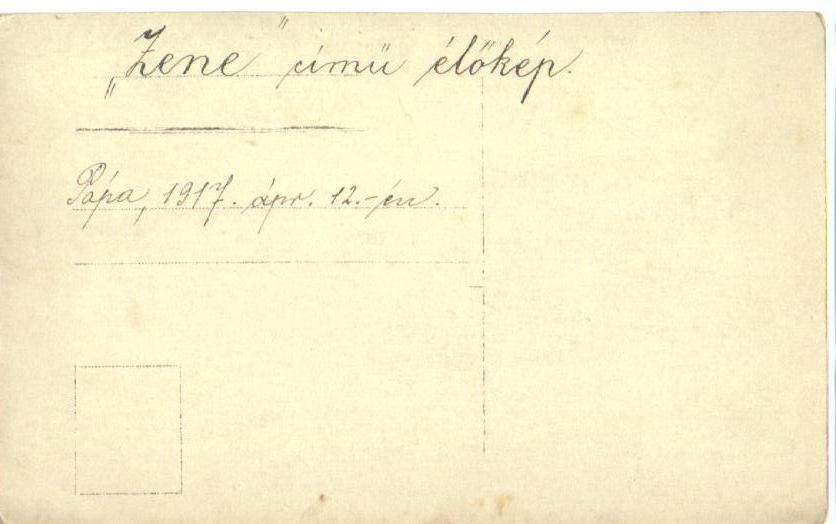 „Zene” című élőkép.
Pápa, 1917. ápr. 12.-én.